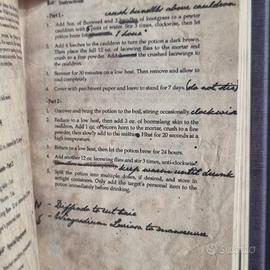 crush bundles above cauldron
Instructions
- Part 1 -
1. Add 3oz. of fluxweed and 3 bundles of knotgrass to a pewter
cauldron with pints of water. Stir 3 times, clockwise, then let
potion brew for 1 hour
2. Add 4 leeches to the cauldron to turn the potion a dark brown.
Then place the full 12 oz. of lacewing flies to the mortar and
crush to a fine powder. Add the crushed lacewings
to the cauldron.
3. Simmer for 30 minutes on a low heat. Then remove and allow to
cool completely.
4. Cover with parchment paper and leave to stand for 7 days (do not stir)
- Part 2 -
1. Uncover and bring the potion to the boil, stirring occasionally, clockwise
2. Reduce to a low heat, then add 3 oz. of boomslang skin to the
cauldron. Add 1 oz. of bicorn horn to the mortar, crush to a fine
powder, then slowly add to the Heat for 20 seconds at a
high temperature.
3. Return to a low heat, then let the potion brew for 24 hours.
4. Add another 12 oz. lacewing flies and stir 3 times, anti-clockwise.
keep warm until drunk
5. Split the potion into multiple doses, if desired, and store in
airtight containers. Only add the target's personal item to the
potion immediately before drinking.
- Diffindo to cut hair
- Wingardium Leviosa to manoeuvre
Subito.it